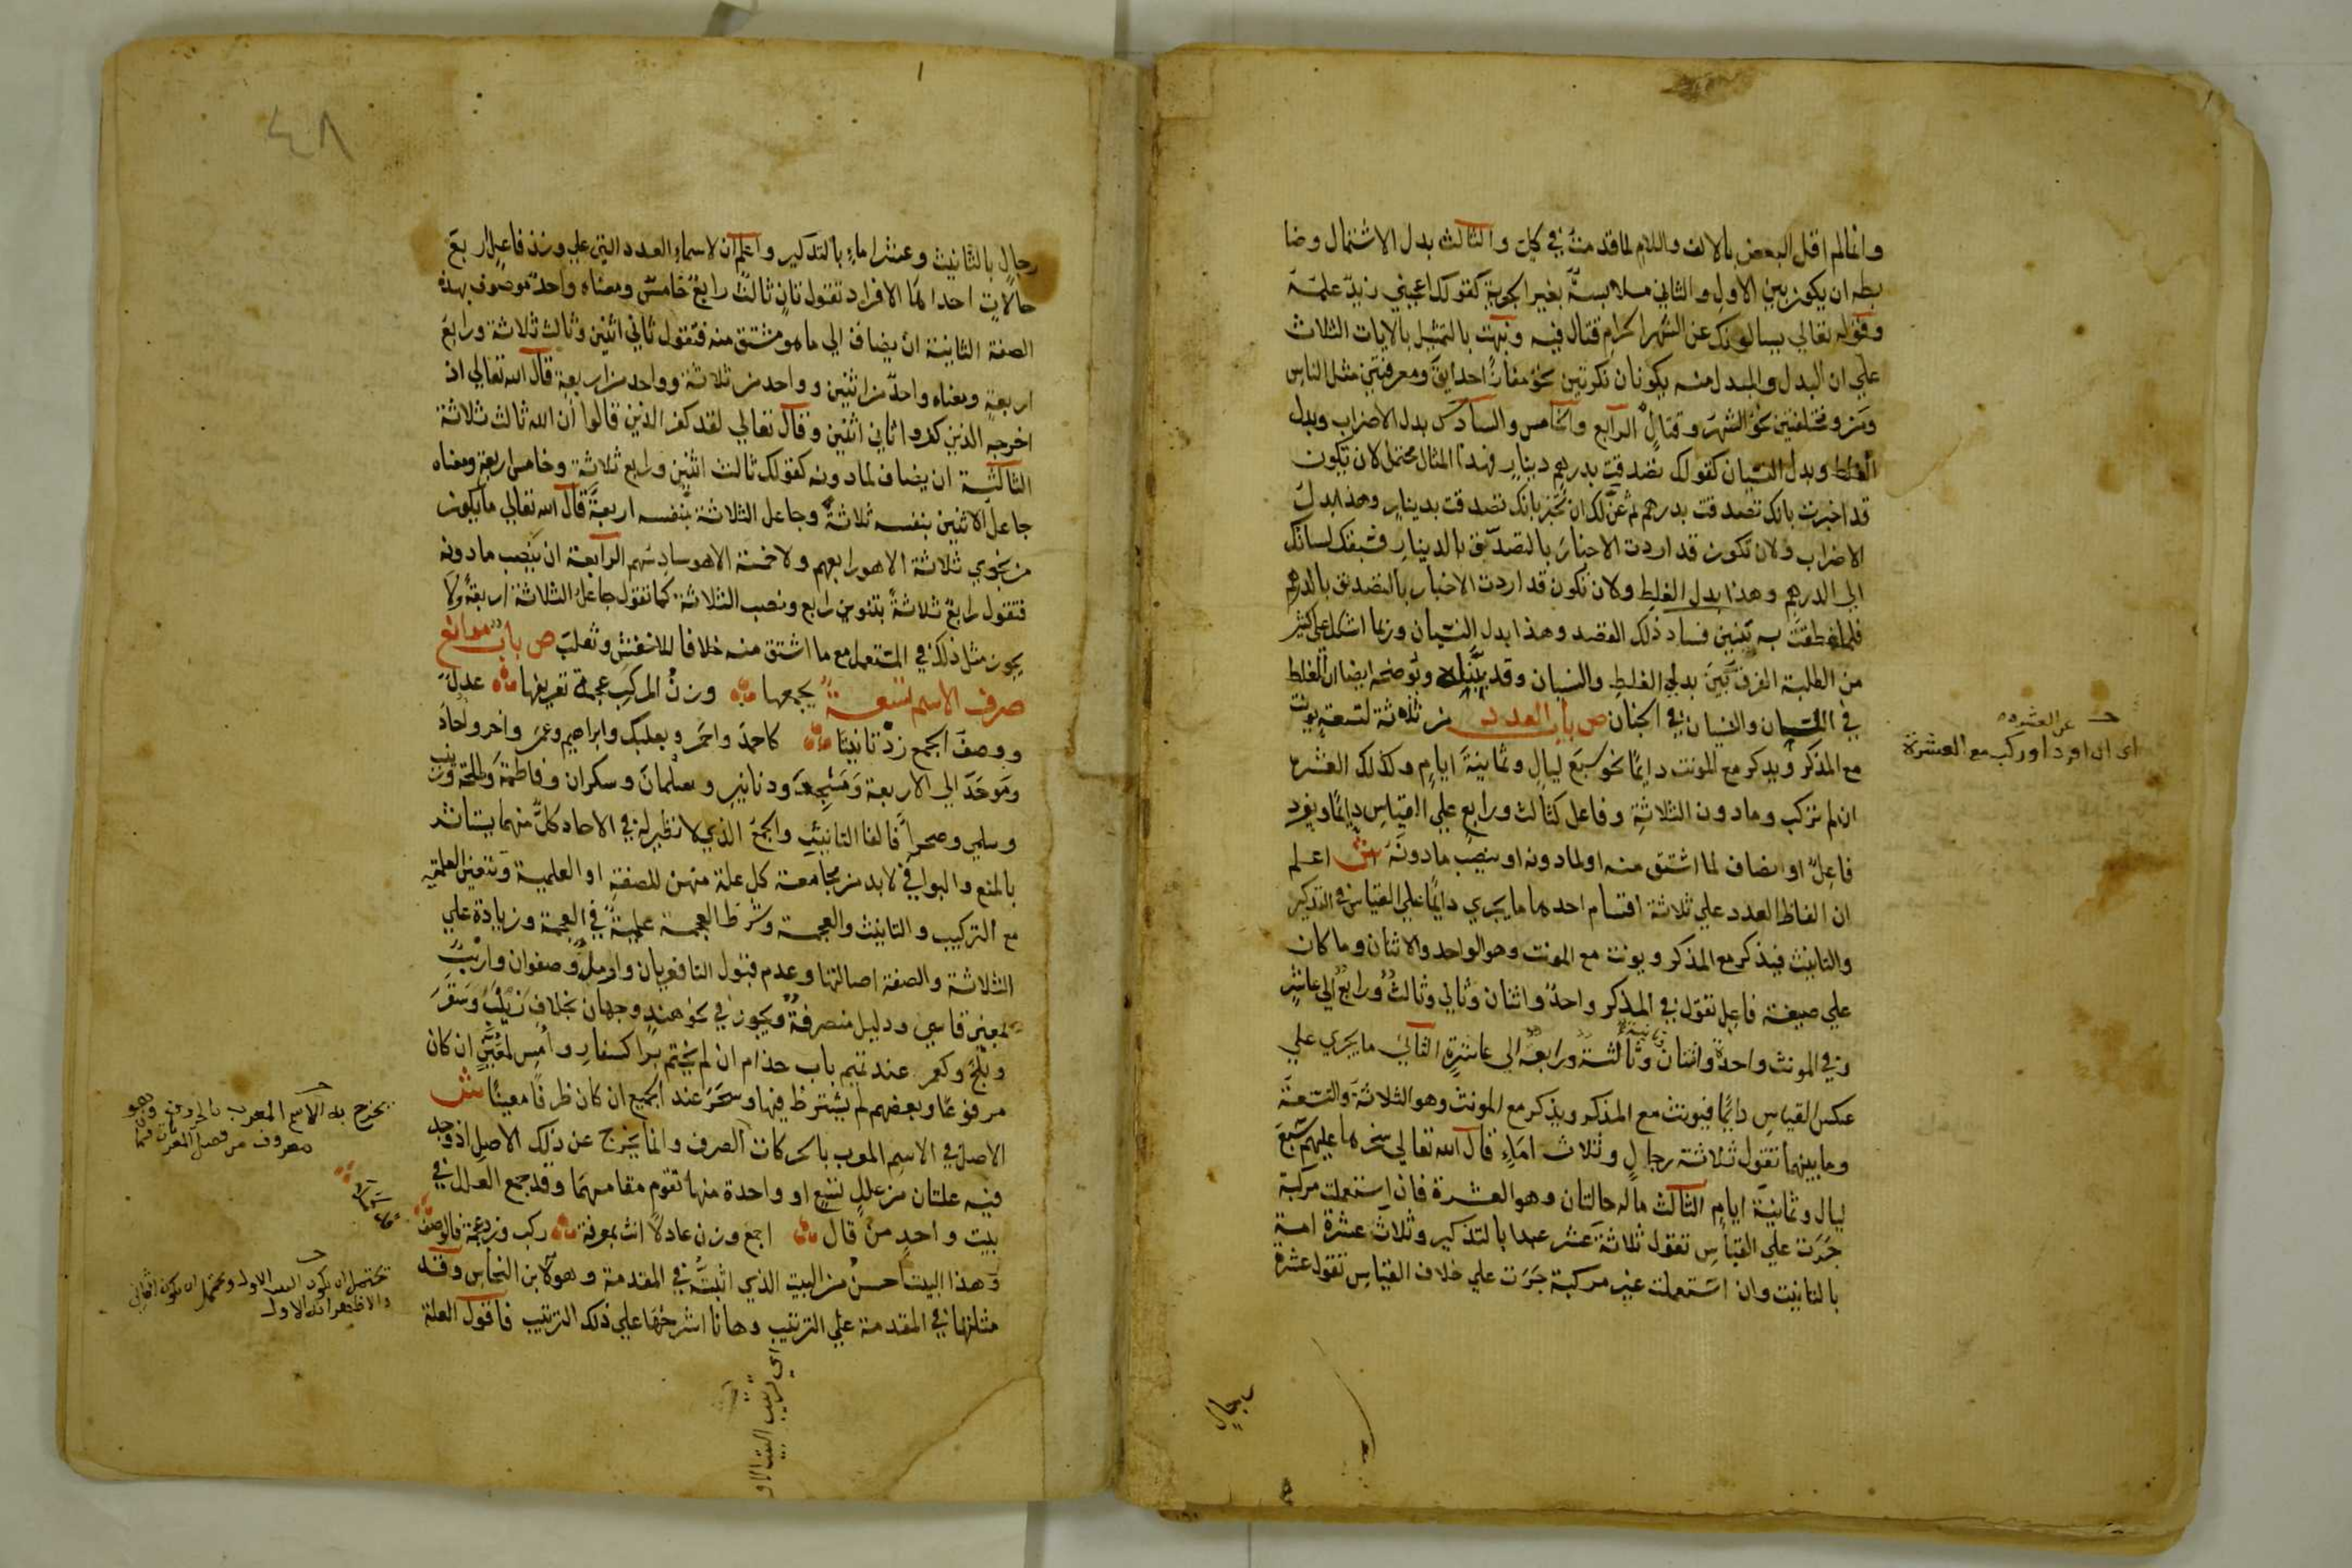 وانما لم اقل البعض بالالف واللام لما قدمت في كل والثالث بدل الاشتمال وضا
بطه ان يكون بين الاول والثاني ملابسة بغير الجزية كقولك اعجبني زيد علمه
وقوله تعالي يسالونك عن الشهر الحرام قتال فيه ونبهت بالتمثيل بالايات الثلاث
علي ان البدل والمبدل منه يكونان نكرتين نحو مفازًا حدايق ومعرفتين مثل الناس
ومن ومختلفتين نحو الشهر وقتال الرابع والخامس والسادس بدل الاضراب وبدل
الغلط وبدل النسيان كقولك تصدقت بدرهم دينار فهذا المثال محتمل لان تكون
قد اخبرت بانك تصدقت بدرهم ثم عن لك ان تخبر بانك تصدقت بدينار وهذا بدل
الاضراب ولان تكون قد اردت الاخبار بالتصدق بالدينار فسبقك لسانك
الي الدرهم وهذا بدل الغلط ولان تكون قد اردت الاخبار بالتصدق بالدرهم
فلما نطقت به تبين فساد ذلك القصد وهذا بدل النسيان وربما اشكل علي كثير
من الطلبة الفرق بين بدلي الغلط والنسيان وقد بيناه ويوضحه ايضا ان الغلط
في اللسان والنسيان في الجنان ص باب العدد من ثلاثة لتسعة يونث
مع المذكر ويذكر مع المونث دايمًا نحو سبع ليال وثمانية ايام وكذلك العشرة
ان لم تركب وما دون الثلاثة وفاعل كثالث ورابع علي القياس دايمًا ويفرد
فاعل او يضاف لما اشتق منه او لما دونه او ينصب ما دونه ش اعلم
ان الفاظ العدد علي ثلاثة اقسام احدها ما يجري دايمًا علي القياس في التذكير
والتانيث فيذكر مع المذكر ويونث مع المونث وهو الواحد والاثنان وما كان
علي صيغة فاعل تقول في المذكر واحد واثنان وثاني وثالث ورابع الي عاشر
وفي المونث واحدة واثنتان وثانية وثالثة ورابعة الي عاشرة الثاني ما يجري علي
عكس القياس دايمًا فيونث مع المذكر ويذكر مع المونث وهو الثلاثة والتسعة
وما بينهما تقول ثلاثة رجال وثلاث اماء قال الله تعالي سخرها عليهم سبع
ليال وثمانية ايام الثالث ما له حالتان وهو العشرة فان استعملت مركبة
جرت علي القياس تقول ثلاثة عشر عبدا بالتذكير وثلاث عشرة امة
بالتانيث وان استعملت غير مركبة جرت علي خلاف القياس تقول عشرة
رجال
عن العشرة
اي ان افرد او ركب مع العشرة
٤٨
رجال بالتانيث وعشر اماء بالتذكير واعلم ان لاسماء العدد التي علي وزن فاعل اربع
حالات احداها الافراد تقول ثان ثالث رابع خامس ومعناه واحد موصوف بهذه
الصفة الثانية ان يضاف الي ما هو مشتق منه فتقول ثاني اثنين وثالث ثلاثة ورابع
اربعة ومعناه واحد من اثنين وواحد من ثلاثة وواحد من اربعة قال الله تعالي اذ
اخرجه الذين كفروا ثاني اثنين وقال تعالي لقد كفر الذين قالوا ان الله ثالث ثلاثة
الثالثة ان يضاف لما دونه كقولك ثالث اثنين ورابع ثلاثة وخامس اربعة ومعناه
جاعل الاثنين بنفسه ثلاثة وجاعل الثلاثة بنفسه اربعة قال الله تعالي ما يكون
من نجوي ثلاثة الا هو رابعهم ولا خمسة الا هو سادسهم الرابعة ان ينصب ما دونه
فتقول رابع ثلاثة بتنوين رابع ونصب الثلاثة كما تقول جاعل الثلاثة اربعة ولا
يجوز مثل ذلك في المستعمل مع ما اشتق منه خلافا للاخفش وثعلب ص باب موانع
صرف الاسم تسعة يجمعها وزن المركب عجمة تعريفها عدل
ووصف الجمع زد تانيثا كاحمد واحمر وبعلبك وابراهيم وعمر واخر واحاد
وموحد الي الاربعة ومساجد ودنانير وسلمان وسكران وفاطمة وطلحة وزينب
وسلمي وصحرا فالفا التانيث والجمع الذي لا نظير له في الاحاد كل منهما يستاثر
بالمنع والبواقي لابد من مجامعة كل علة منهن للصفة او العلمية وتتعين العلمية
مع التركيب والتانيث والعجمة وشرط العجمة علمية في العجمة وزيادة علي
الثلاثة والصفة اصالتها وعدم قبول التا فعريان وارمل وصفوان وارنب
بمعني قاسي ودليل منصرفة ويجوز في نحو هند وجهان بخلاف زينب وسقر
وبلخ وكعمر عند تميم باب حذام ان لم يختم برا كسفار وامس لمعين ان كان
مرفوعًا وبعضهم لم يشترط فيها وسحر عند الجميع ان كان ظرفًا معينًا ش
الاصل في الاسم المعرب بالحركات الصرف وانما يخرج عن ذلك الاصل اذا وجد
فيه علتان من علل تسع او واحدة منها تقوم مقامهما وقد جمع العلل في
بيت واحد من قال اجمع وزن عادلًا انث بمعرفة ركب وزد عجمة فالوصف
وهذا البيت احسن من البيت الذي اثبته في المقدمة وهو لابن النحاس وقد
مثلتها في المقدمة علي الترتيب وها انا اشرحها علي ذلك الترتيب فاقول العلة
يخرج به الاسم المعرب بالحروف وهو
تحتمل ان يكون البيت الاول وتحتمل ان يكون الثاني
والاظهر انه الاول
اي ترتيب البيت الاول